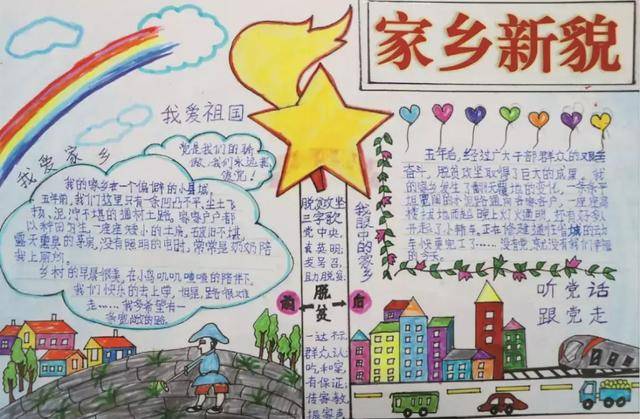 家乡新貌
我爱祖国
我爱家乡
党是我们的骄
傲,我们永远爱
您党!
我的家乡在一个偏僻的小县城,
五年前,我们这里只有一条凹凸不平,尘土飞
扬、泥泞不堪的通村土路。家家户户都
以种田为生。一座座矮小的土房,
露天垂危的茅房,没有照明的电时,常常是奶奶陪
我上厕所。
乡村的早晨很美,在小鸟叽叽喳喳的陪伴下,
我们快乐的去上学,但是,路很难
走……我多希望有一
条宽敞的路。
脱贫攻坚
三字歌
党中央,
袁英明;
发号召,
且力脱贫。
前 脱贫 后
一达标,
群众认
吃,和穿,
有保证;
我眼中的家乡
五年后,经过广大干部群众的艰苦
奋斗,脱贫攻坚取得了巨大的成果。我
的家乡发生了翻天覆地的变化,一条条平
坦宽阔的水泥路通向各家各户,一座座高
楼拔地而起晚上灯火通明。还有好多人
开起了小轿车。正在修建通往俗城的动
车快要完工了……没有党,就没有我们幸福
的今天。
听党话
跟党走